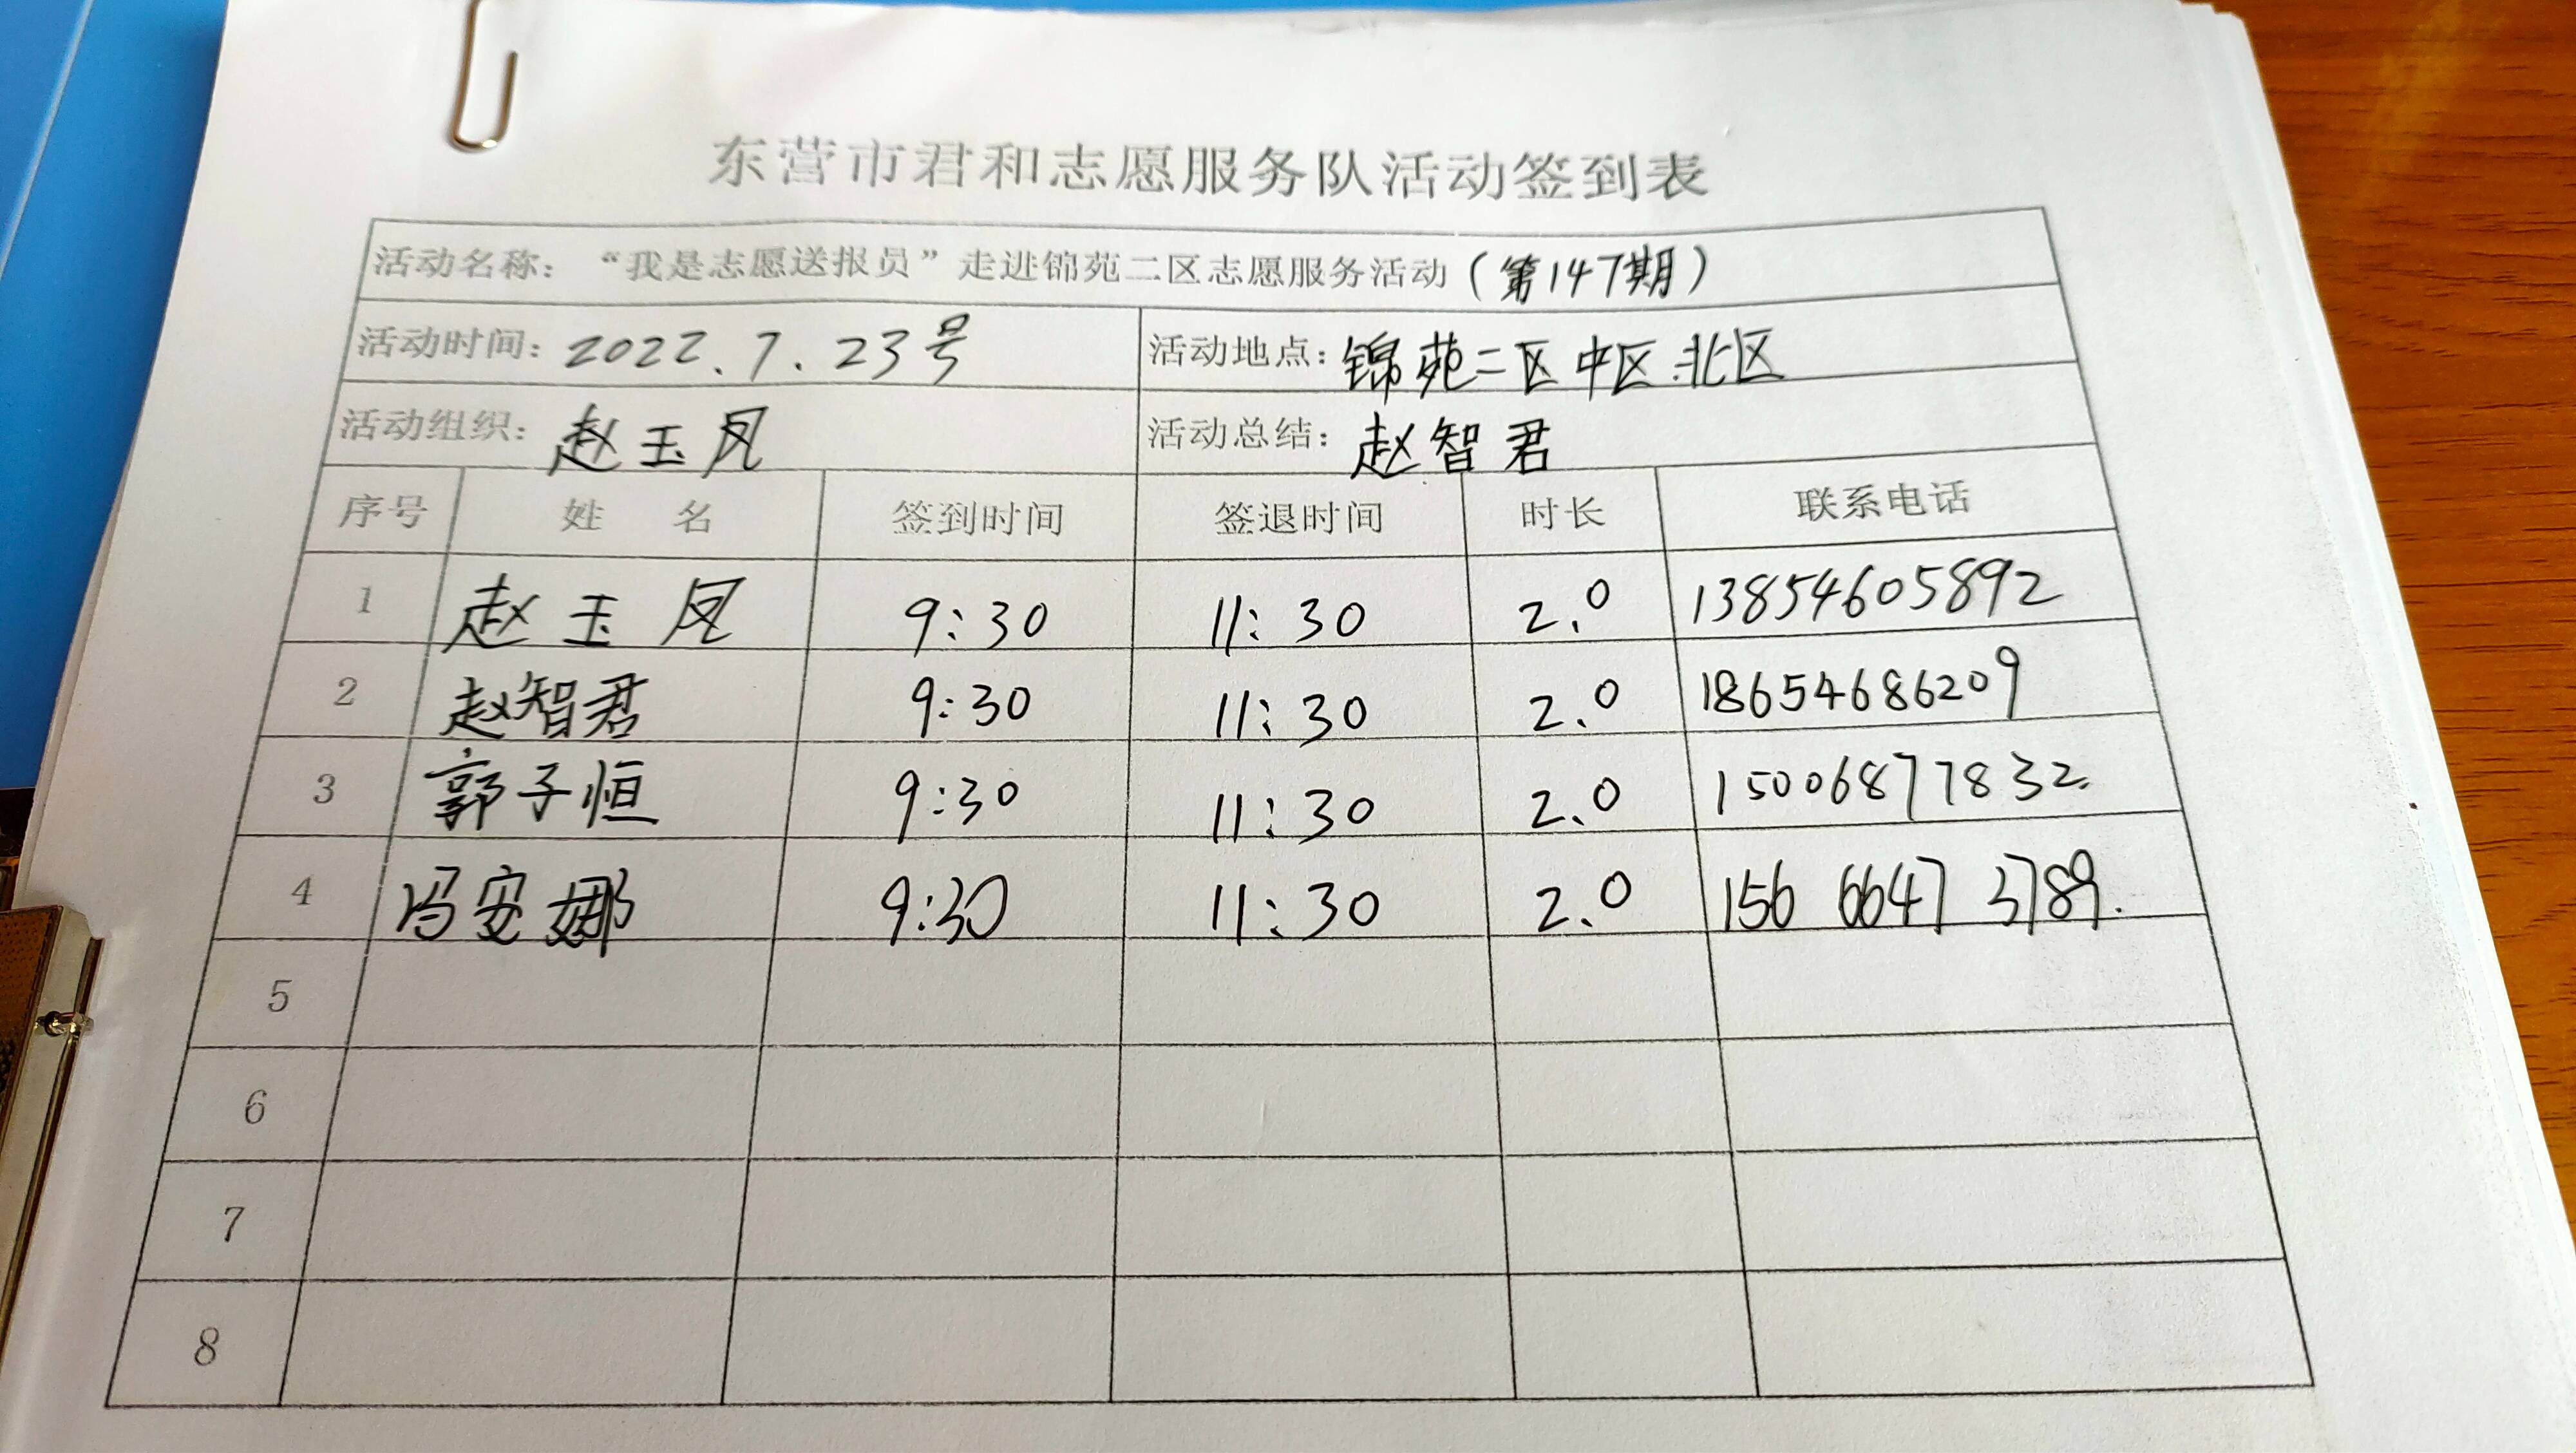 东营市君和志愿服务队活动签到表
活动名称：“我是志愿送报员”走进锦苑二区志愿服务活动（第147期）
活动时间：2022.7.23号 活动地点：锦苑二区中区.北区
活动组织：赵玉凤 活动总结：赵智君
序号 姓 名 签到时间 签退时间 时长 联系电话
1 赵玉凤 9:30 11:30 2.0 13854605892
2 赵智君 9:30 11:30 2.0 18654686209
3 郭子恒 9:30 11:30 2.0 15006877832.
4 冯安娜 9:30 11:30 2.0 156 6647 3789.
5
6
7
8